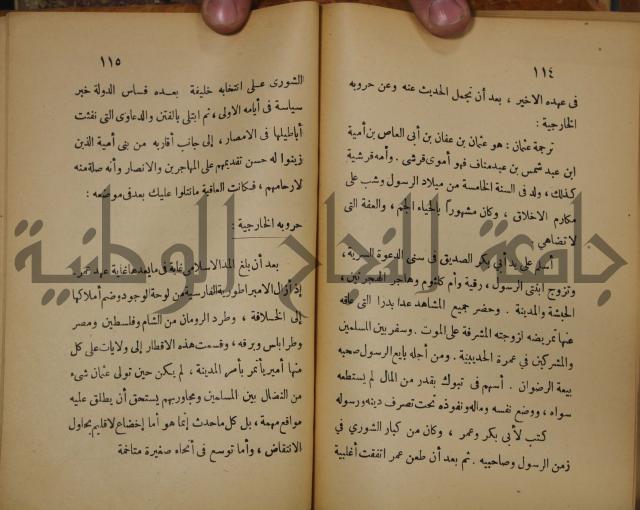 ١١٤
فى عهده الاخير ، بعد أن نجمل الحديث عنه وعن حروبه
الخارجية :
ترجمة عثمان : هو عثمان بن عفان بن أبى العاص بن أمية
ابن عبد شمس بن عبد مناف فهو أموى قرشى . وأمه قرشية
كذلك ، ولد فى السنة الخامسة من ميلاد الرسول وشب على
مكارم الاخلاق ، وكان مشهوراً بالحياء الجم ، والعفة التى
لا تضاهى
أسلم على يد أبى بكر الصديق فى سنى الدعوة السرية ،
وتزوج ابنتى الرسول ، رقية وأم كلثوم وهاجر الهجرتين ،
الحبشة والمدينة . وحضر جميع المشاهد عدا بدرا التى عاقه
عنها تمريضه لزوجته المشرفة على الموت . وسفر بين المسلمين
والمشركين فى عمرة الحديبية . ومن أجله بايع الرسول صحبه
بيعة الرضوان . أسهم فى تبوك بقدر من المال لم يستطعه
سواه ، ووضع نفسه وماله ونفوذه تحت تصرف دينه ورسوله
كتب لأبى بكر وعمر ، وكان من كبار الشورى فى
زمن الرسول وصاحبيه . ثم بعد أن طعن عمر اتفقت أغلبية
١١٥
الشورى على انتخابه خليفة بعده فساس الدولة خير
سياسة فى أيامه الاولى ، ثم ابتلى بالفتن والدعاوى التى نفثت
أباطيلها فى الامصار ، إلى جانب أقاربه من بنى أمية الذين
زينوا له حسن تقديمهم على المهاجرين والانصار وأنه صلة منه
لارحامهم ، فكانت العاقبة ما تتلوا عليك بعد فى موضعه :
حروبه الخارجية :
بعد أن بلغ المد الاسلامى غاية فى ما بعدها غاية عهد عمر .
إذ أزال الامبراطورية الفارسية من لوحة الوجود وضم أملاكها
إلى الخلافة ، وطرد الرومان من الشام وفلسطين ومصر
وطرابلس وبرقه ، وقسمت هذه الاقطار إلى ولايات على كل
منها أمير يأتمر بأمر المدينة ، لم يكن حين تولى عثمان شىء
من النضال بين المسلمين ومجاوريهم يستحق أن يطلق عليه
مواقع مهمة ، بل كل ما حدث إنما هو أما إخضاع لاقليم يحاول
الانتقاض ، وأما توسع فى أنحاء صغيرة متاخمة
جامعة النجاح الوطنية